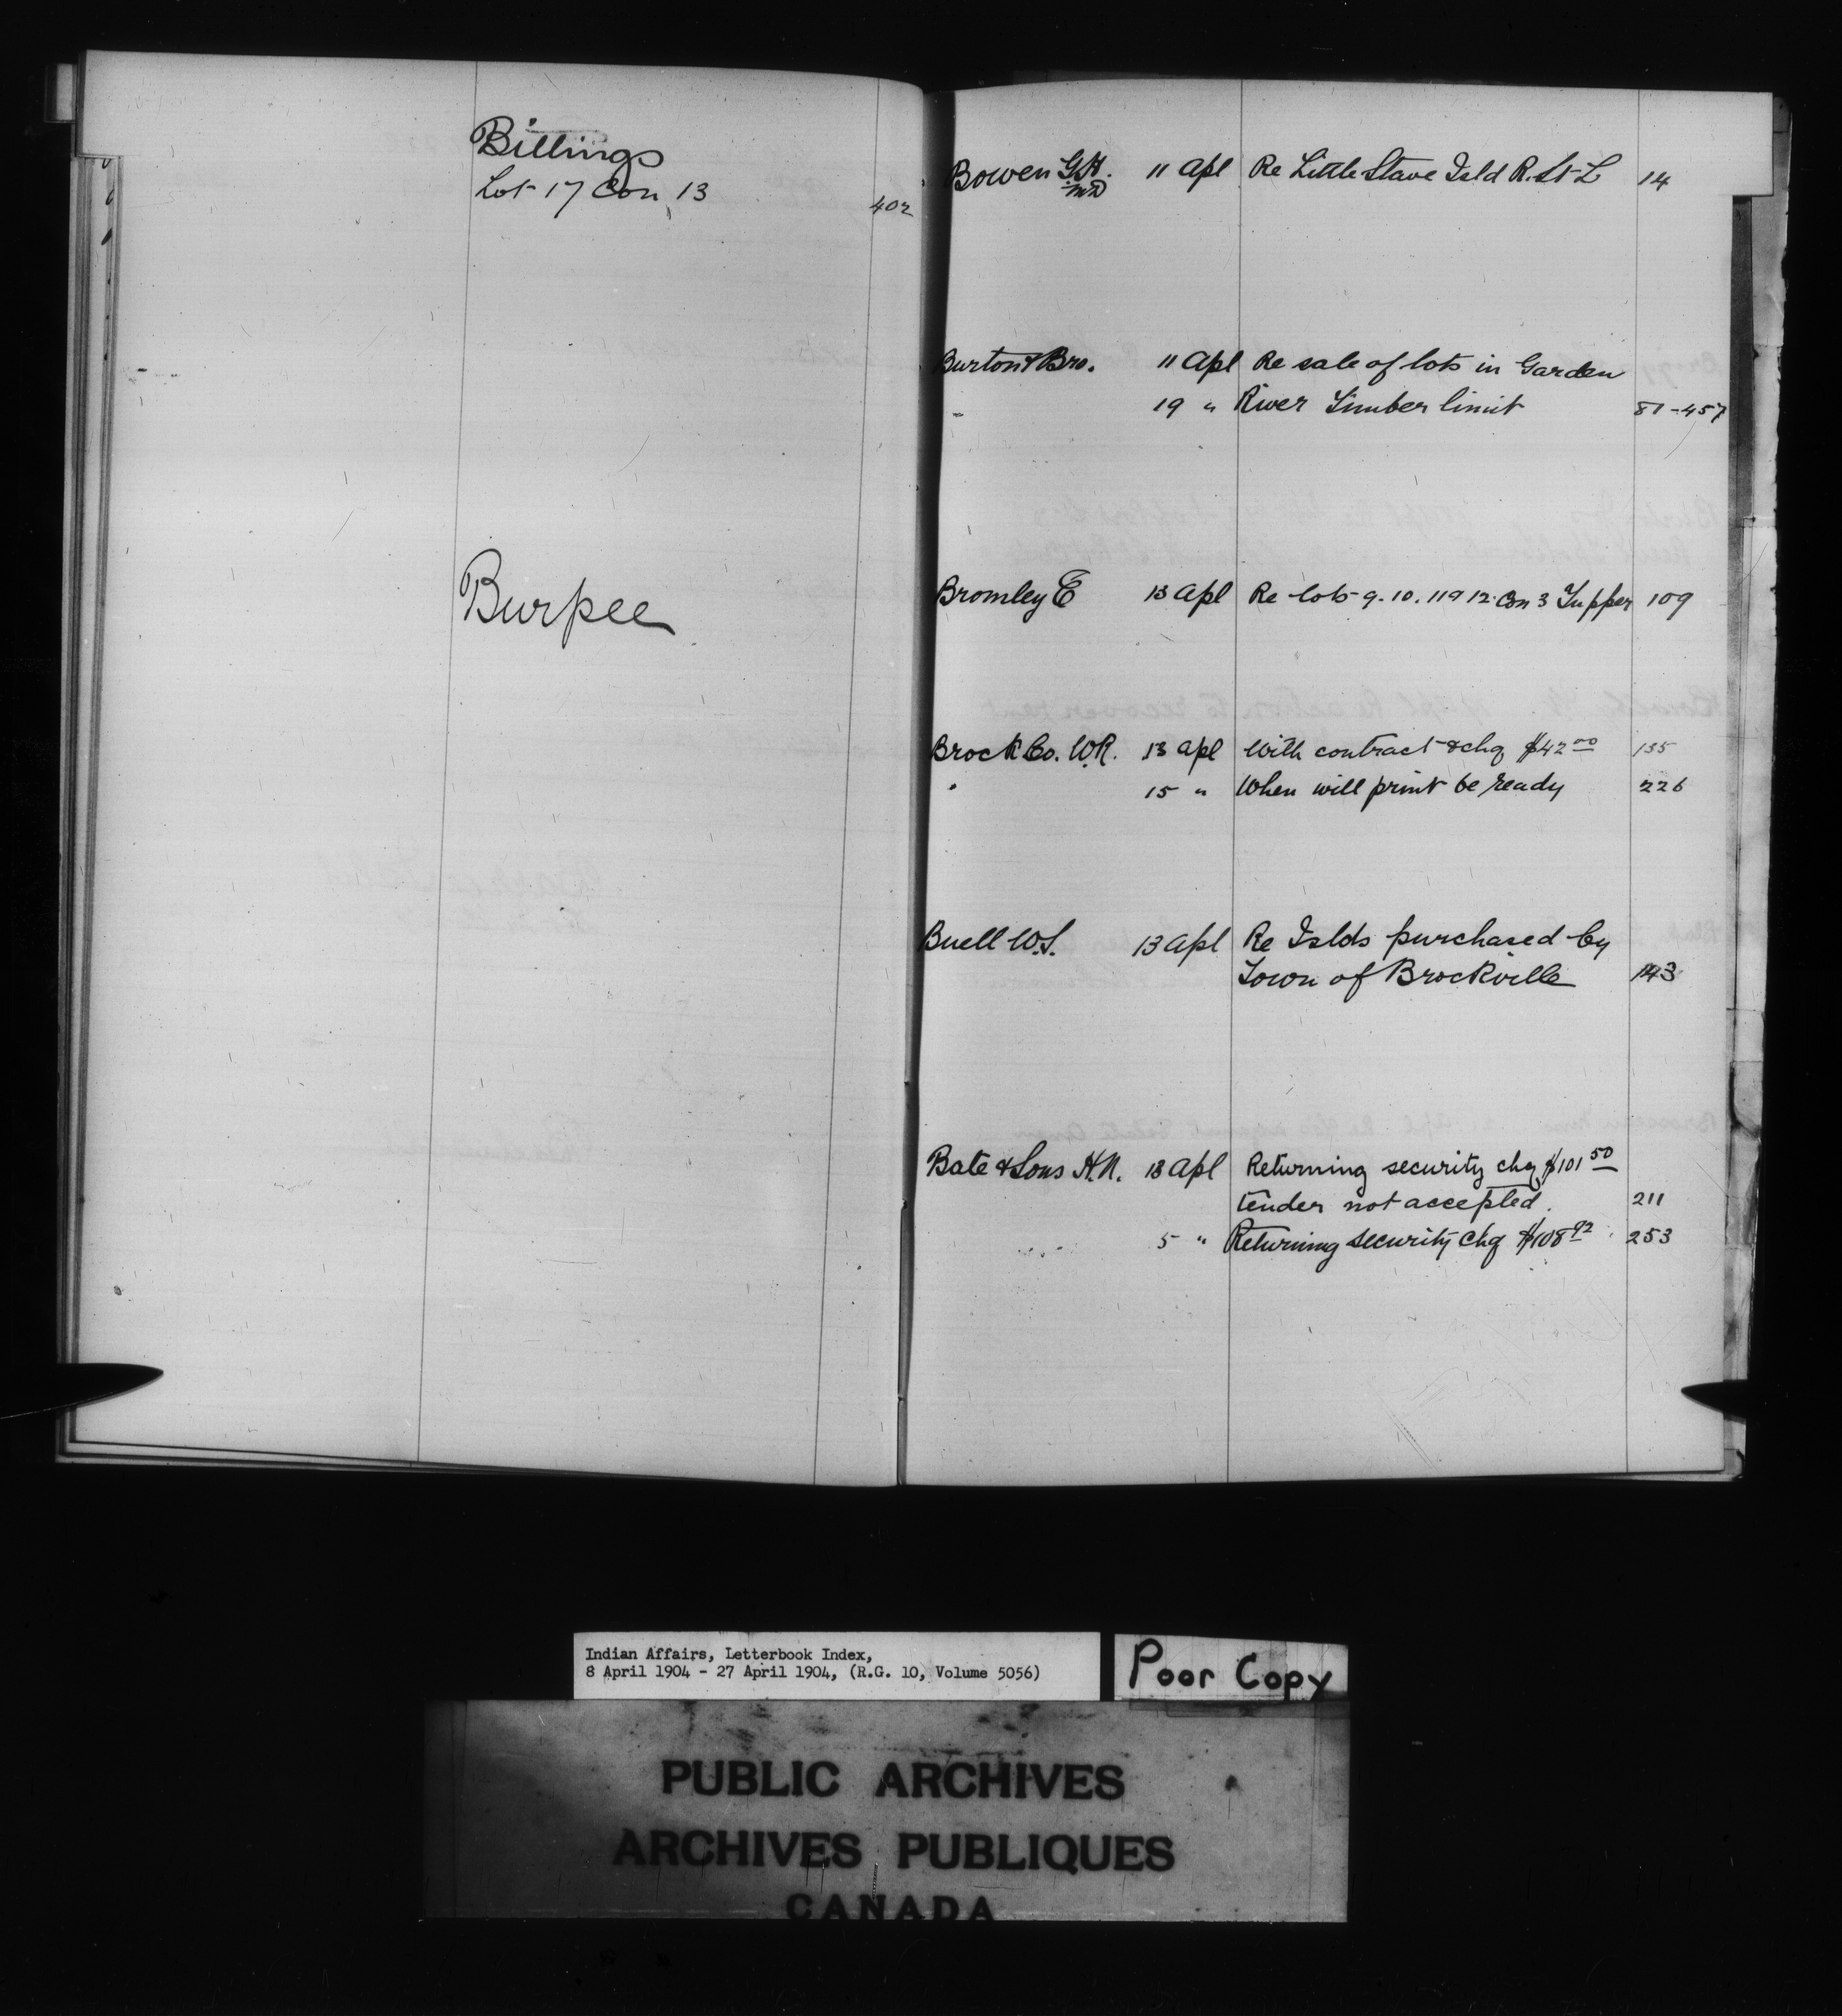 Billings
Lot 17 Con 13
402
Burpee
Bowen G.H. 11 Apl Re Little Stave Isld R. St. L 14
MD
Burton & Bro. 11 Apl Re sale of lots in Garden
" 19 " River Timber limit 81-457
Bromley E 13 Apl Re lots 9. 10. 11 & 12 Con 3 Tupper 109
Brock Co. W.R. 13 Apl With contract & chq $42 00 135
" 15 " When will print be ready 226
Buell W.S. 13 Apl Re Islds purchased by
Town of Brockville 143
Bate & Sons H.N. 13 Apl Returning security chq $101 50
tender not accepted. 211
5 " Returning security chq $108 92 253
Indian Affairs, Letterbook Index,
8 April 1904 - 27 April 1904, (R.G. 10, Volume 5056)
Poor Copy
PUBLIC ARCHIVES
ARCHIVES PUBLIQUES
CANADA